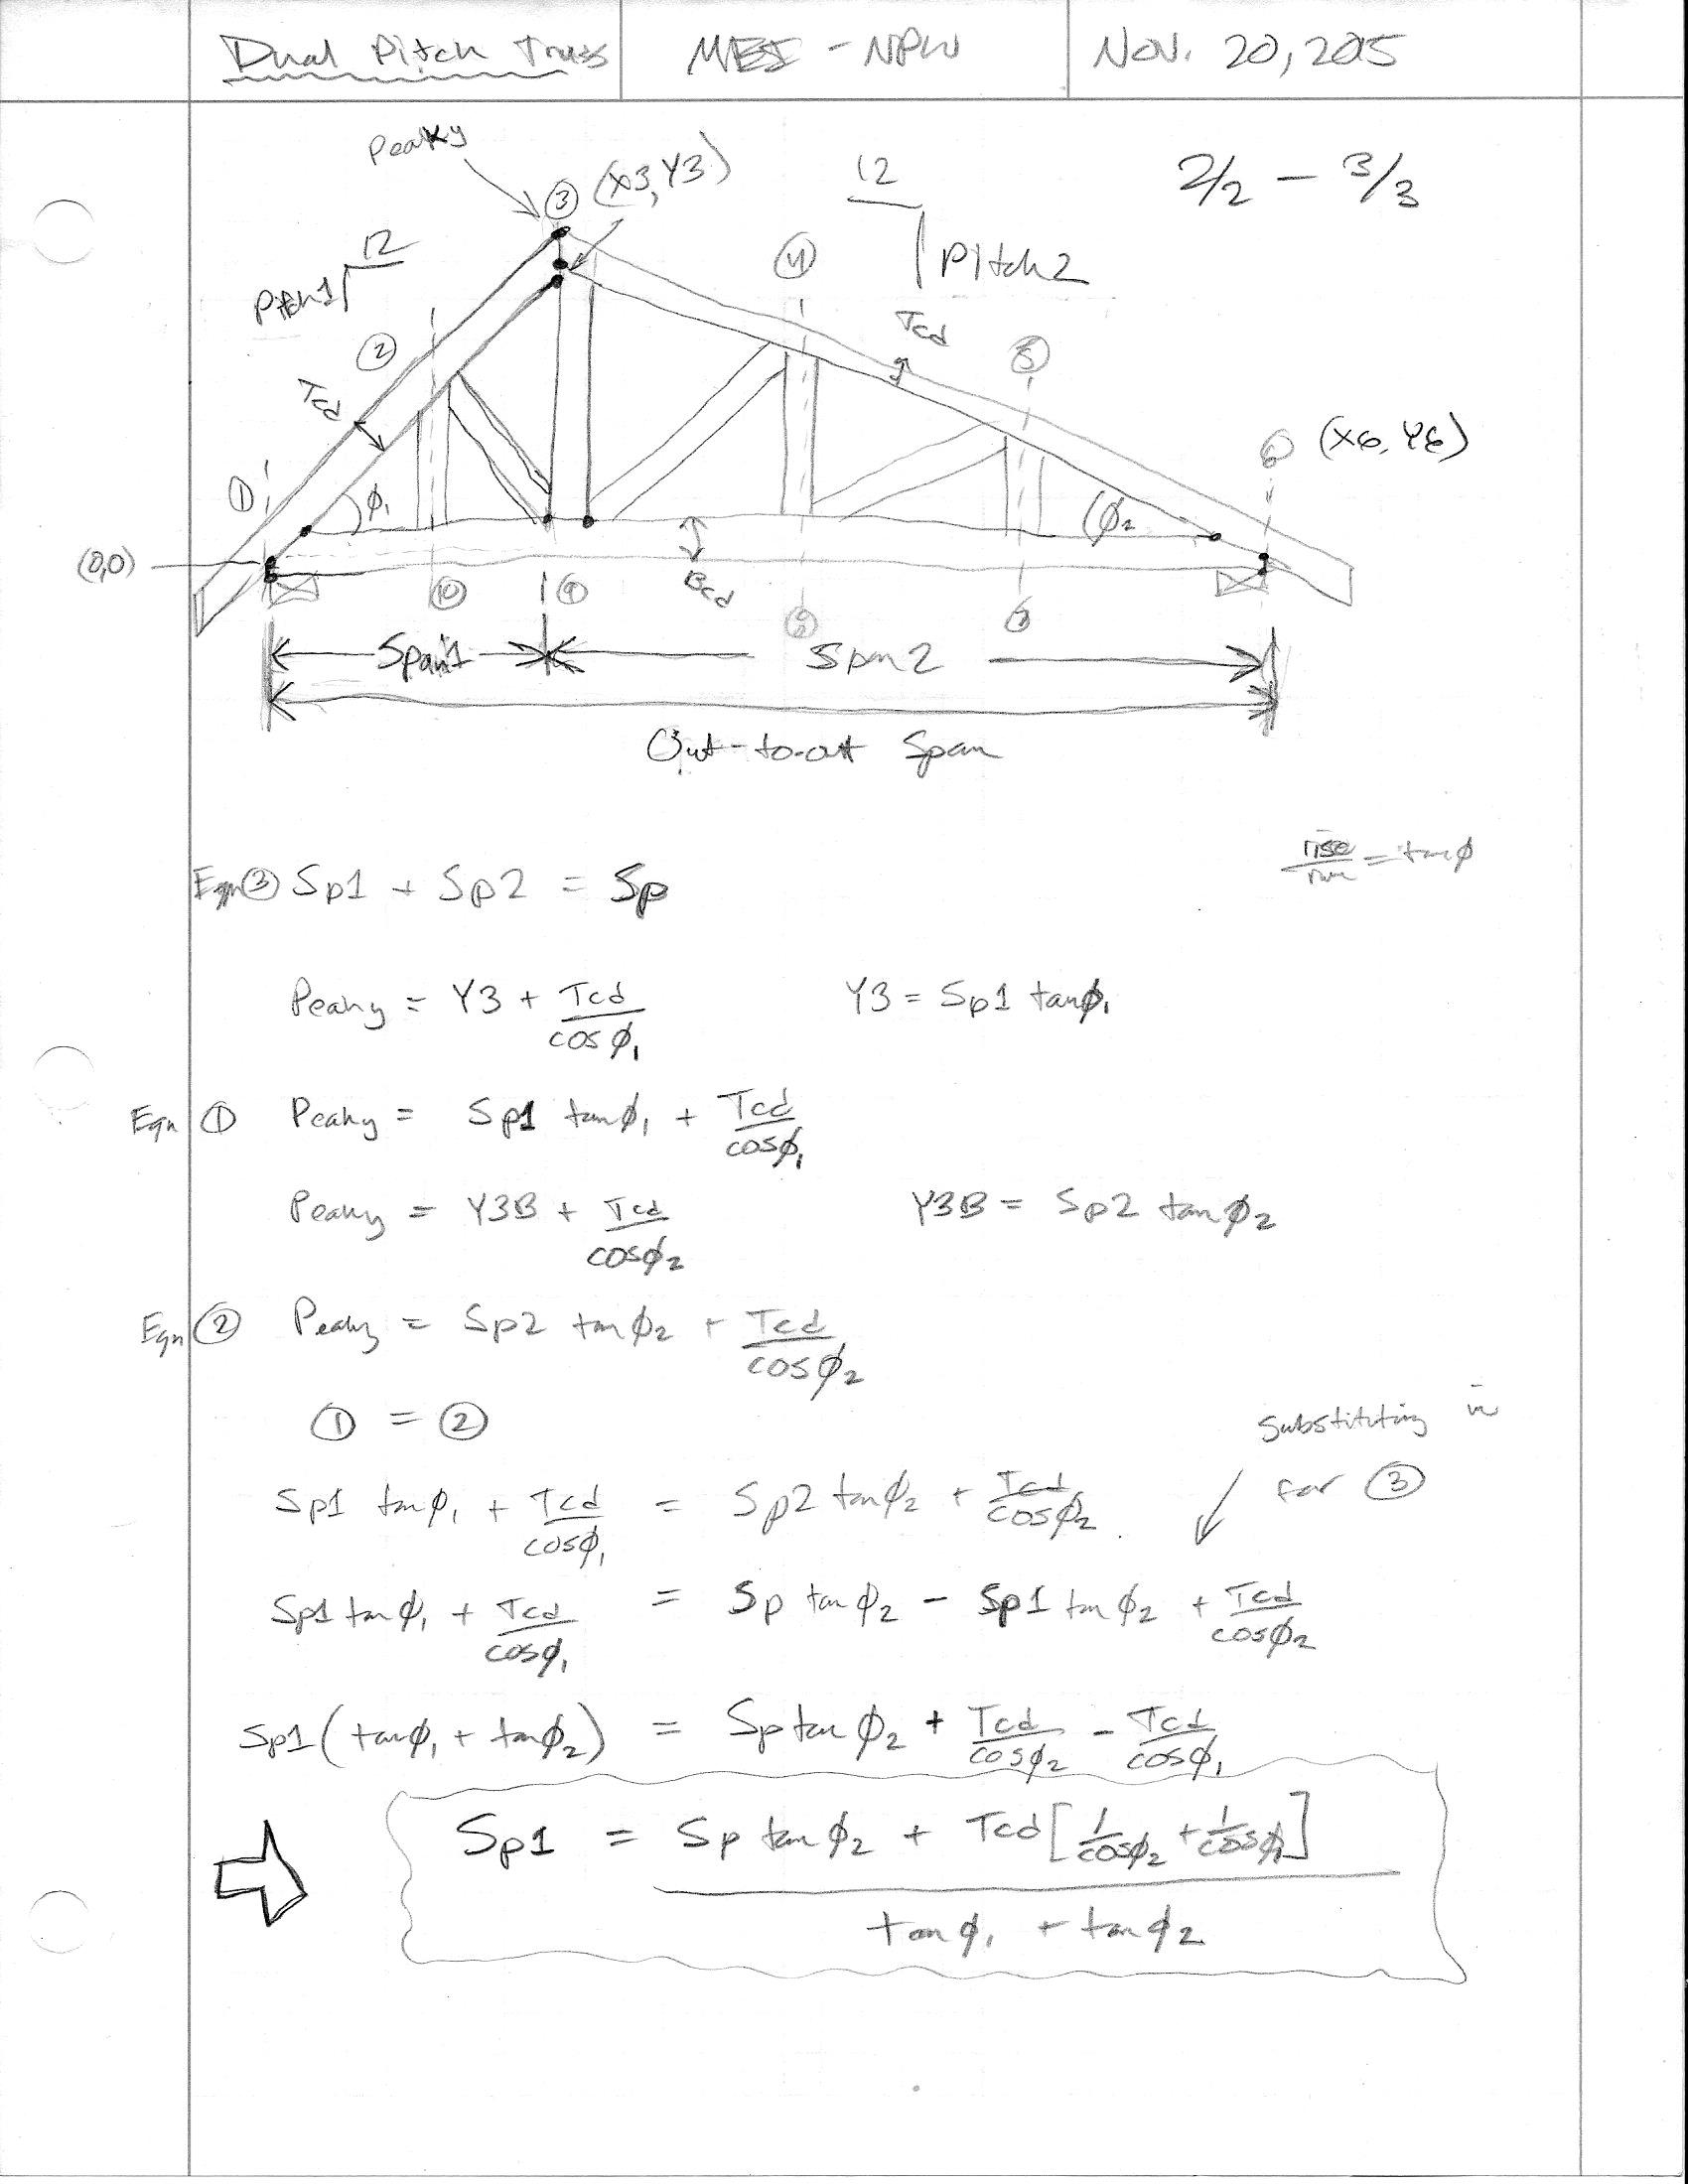 Dual Pitch Truss MEI - NPW Nov. 20, 2015
Peaky
③ (X3,Y3)
12
2/2 - 3/3
12
Pitch1
④
Pitch2
②
Tcd
Tcd
⑤
①
φ1
φ2
6 (X6,Y6)
(0,0)
Bcd
⑩ ⑨ ⑧ ⑦
Span1 Span2
Out-to-out Span
rise/run = tanφ
Eqn ③ Sp1 + Sp2 = Sp
Peaky = Y3 + Tcd/cosφ1 Y3 = Sp1 tanφ1
Eqn ① Peaky = Sp1 tanφ1 + Tcd/cosφ1
Peaky = Y3B + Tcd/cosφ2 Y3B = Sp2 tanφ2
Eqn ② Peaky = Sp2 tanφ2 + Tcd/cosφ2
① = ②
substituting in
for ③
Sp1 tanφ1 + Tcd/cosφ1 = Sp2 tanφ2 + Tcd/cosφ2
Sp1 tanφ1 + Tcd/cosφ1 = Sp tanφ2 - Sp1 tanφ2 + Tcd/cosφ2
Sp1 (tanφ1 + tanφ2) = Sp tanφ2 + Tcd/cosφ2 - Tcd/cosφ1
Sp1 = Sp tanφ2 + Tcd[1/cosφ2 + 1/cosφ1]
tanφ1 + tanφ2